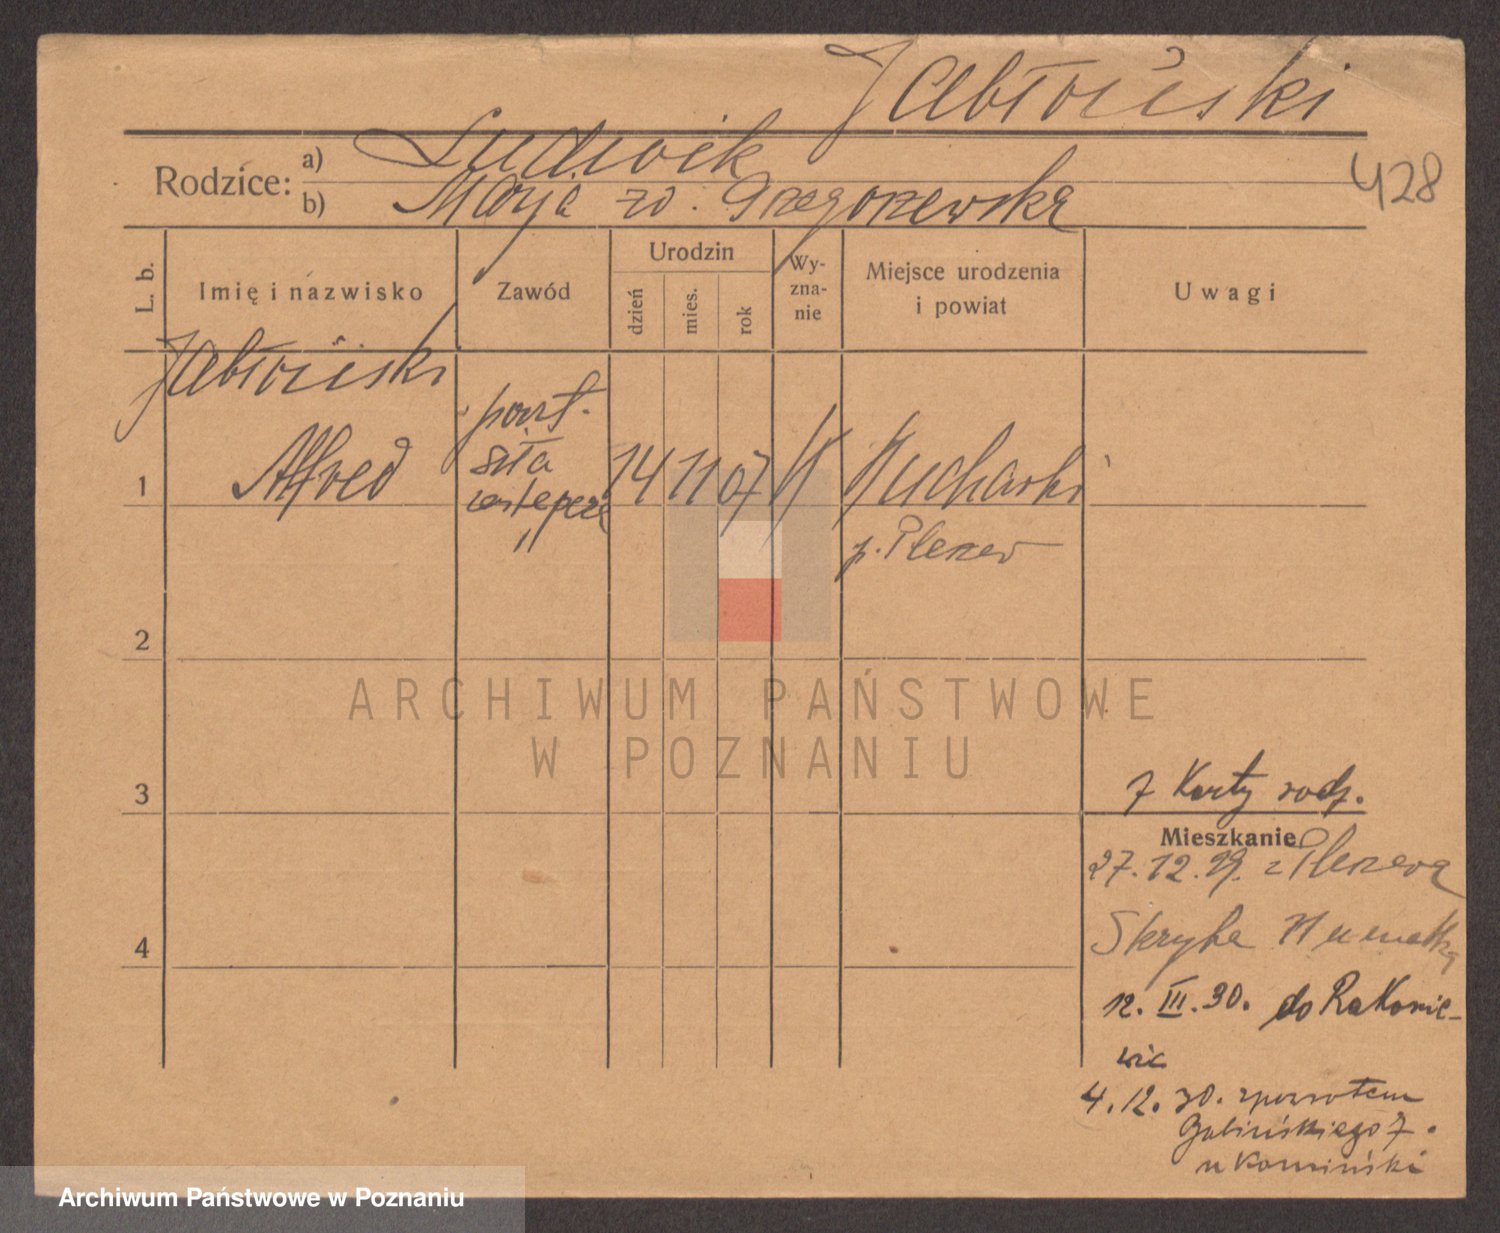 Jabłoński
Rodzice:
a) Ludwik
b) Marja zd. Grzegorzewska
428
L. b.
Imię i nazwisko
Zawód
Urodzin
dzień
mies.
rok
Wy-
zna-
nie
Miejsce urodzenia
i powiat
Uwagi
Jabłoński
Alfred
poszt.
siła
zastępcz
1
14 11 07
K
Kucharki
p. Pleszew
2
3
z Karty rodz.
Mieszkanie
27.12.29. z Pleszewa
4
12. III. 30. do Rakonie-
wic
4.12.30. zpowrotem
7.
u
ARCHIWUM PAŃSTWOWE
W POZNANIU
Archiwum Państwowe w Poznaniu